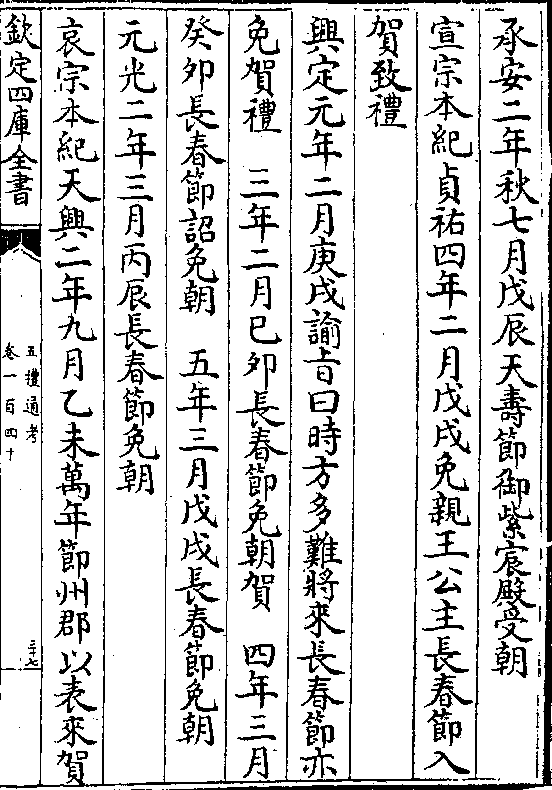 承安二年秋七月戊辰天壽節御紫宸殿受朝
宣宗本紀貞祐四年二月戊戌免親王公主長春節入
賀致禮
興定元年二月庚戌諭旨曰時方多難將來長春節亦
免賀禮　三年二月己卯長春節免朝賀　四年三月
癸卯長春節詔免朝　五年三月戊戌長春節免朝
元光二年三月丙辰長春節免朝
哀宗本紀天興二年九月乙未萬年節州郡以表來賀
欽定四庫全書
五禮通考
卷一百四十
三十七